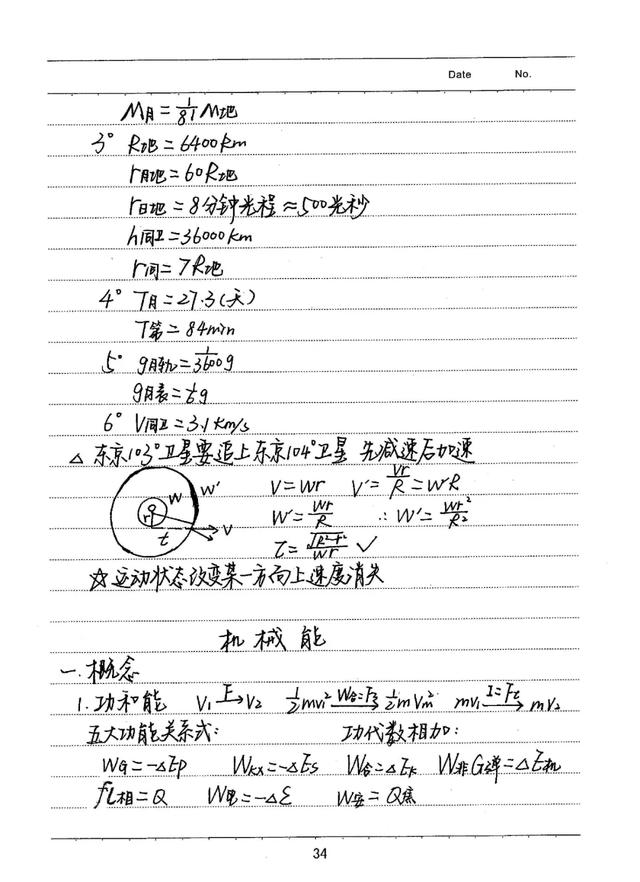 Date No.
M月 = 1/81 M地
3° R地 = 6400km
r月地 = 60R地
r日地 = 8分钟光程 ≈ 500光秒
h同卫 = 36000km
r同 = 7R地
4° T月 = 27.3(天)
T第 = 84min
5° g月轨 = 1/3600 g
g月表 = 1/6 g
6° V同卫 = 3.1km/s
△ 东京103°卫星要追上东京104°卫星 先减速后加速
V = Wr V' = Vr/R = W'R
W' = Wr/R ∴ W' = Wr²/R²
t = √R²-r²/Wr ✓
r W W' t V
☆ 运动状态改变某一方向上速度消失
机械能
一. 概念
1. 功和能 V₁ F→ V₂ ½mv₁² W合=Fs→ ½mVm² mv₁ I=Ft→ mv₂
五大功能关系式: 功代数相加:
WG = -△Ep Wkx = -△Es W合 = △Ek W非G弹 = △E机
fL相 = Q W电 = -△ε W安 = Q焦
34